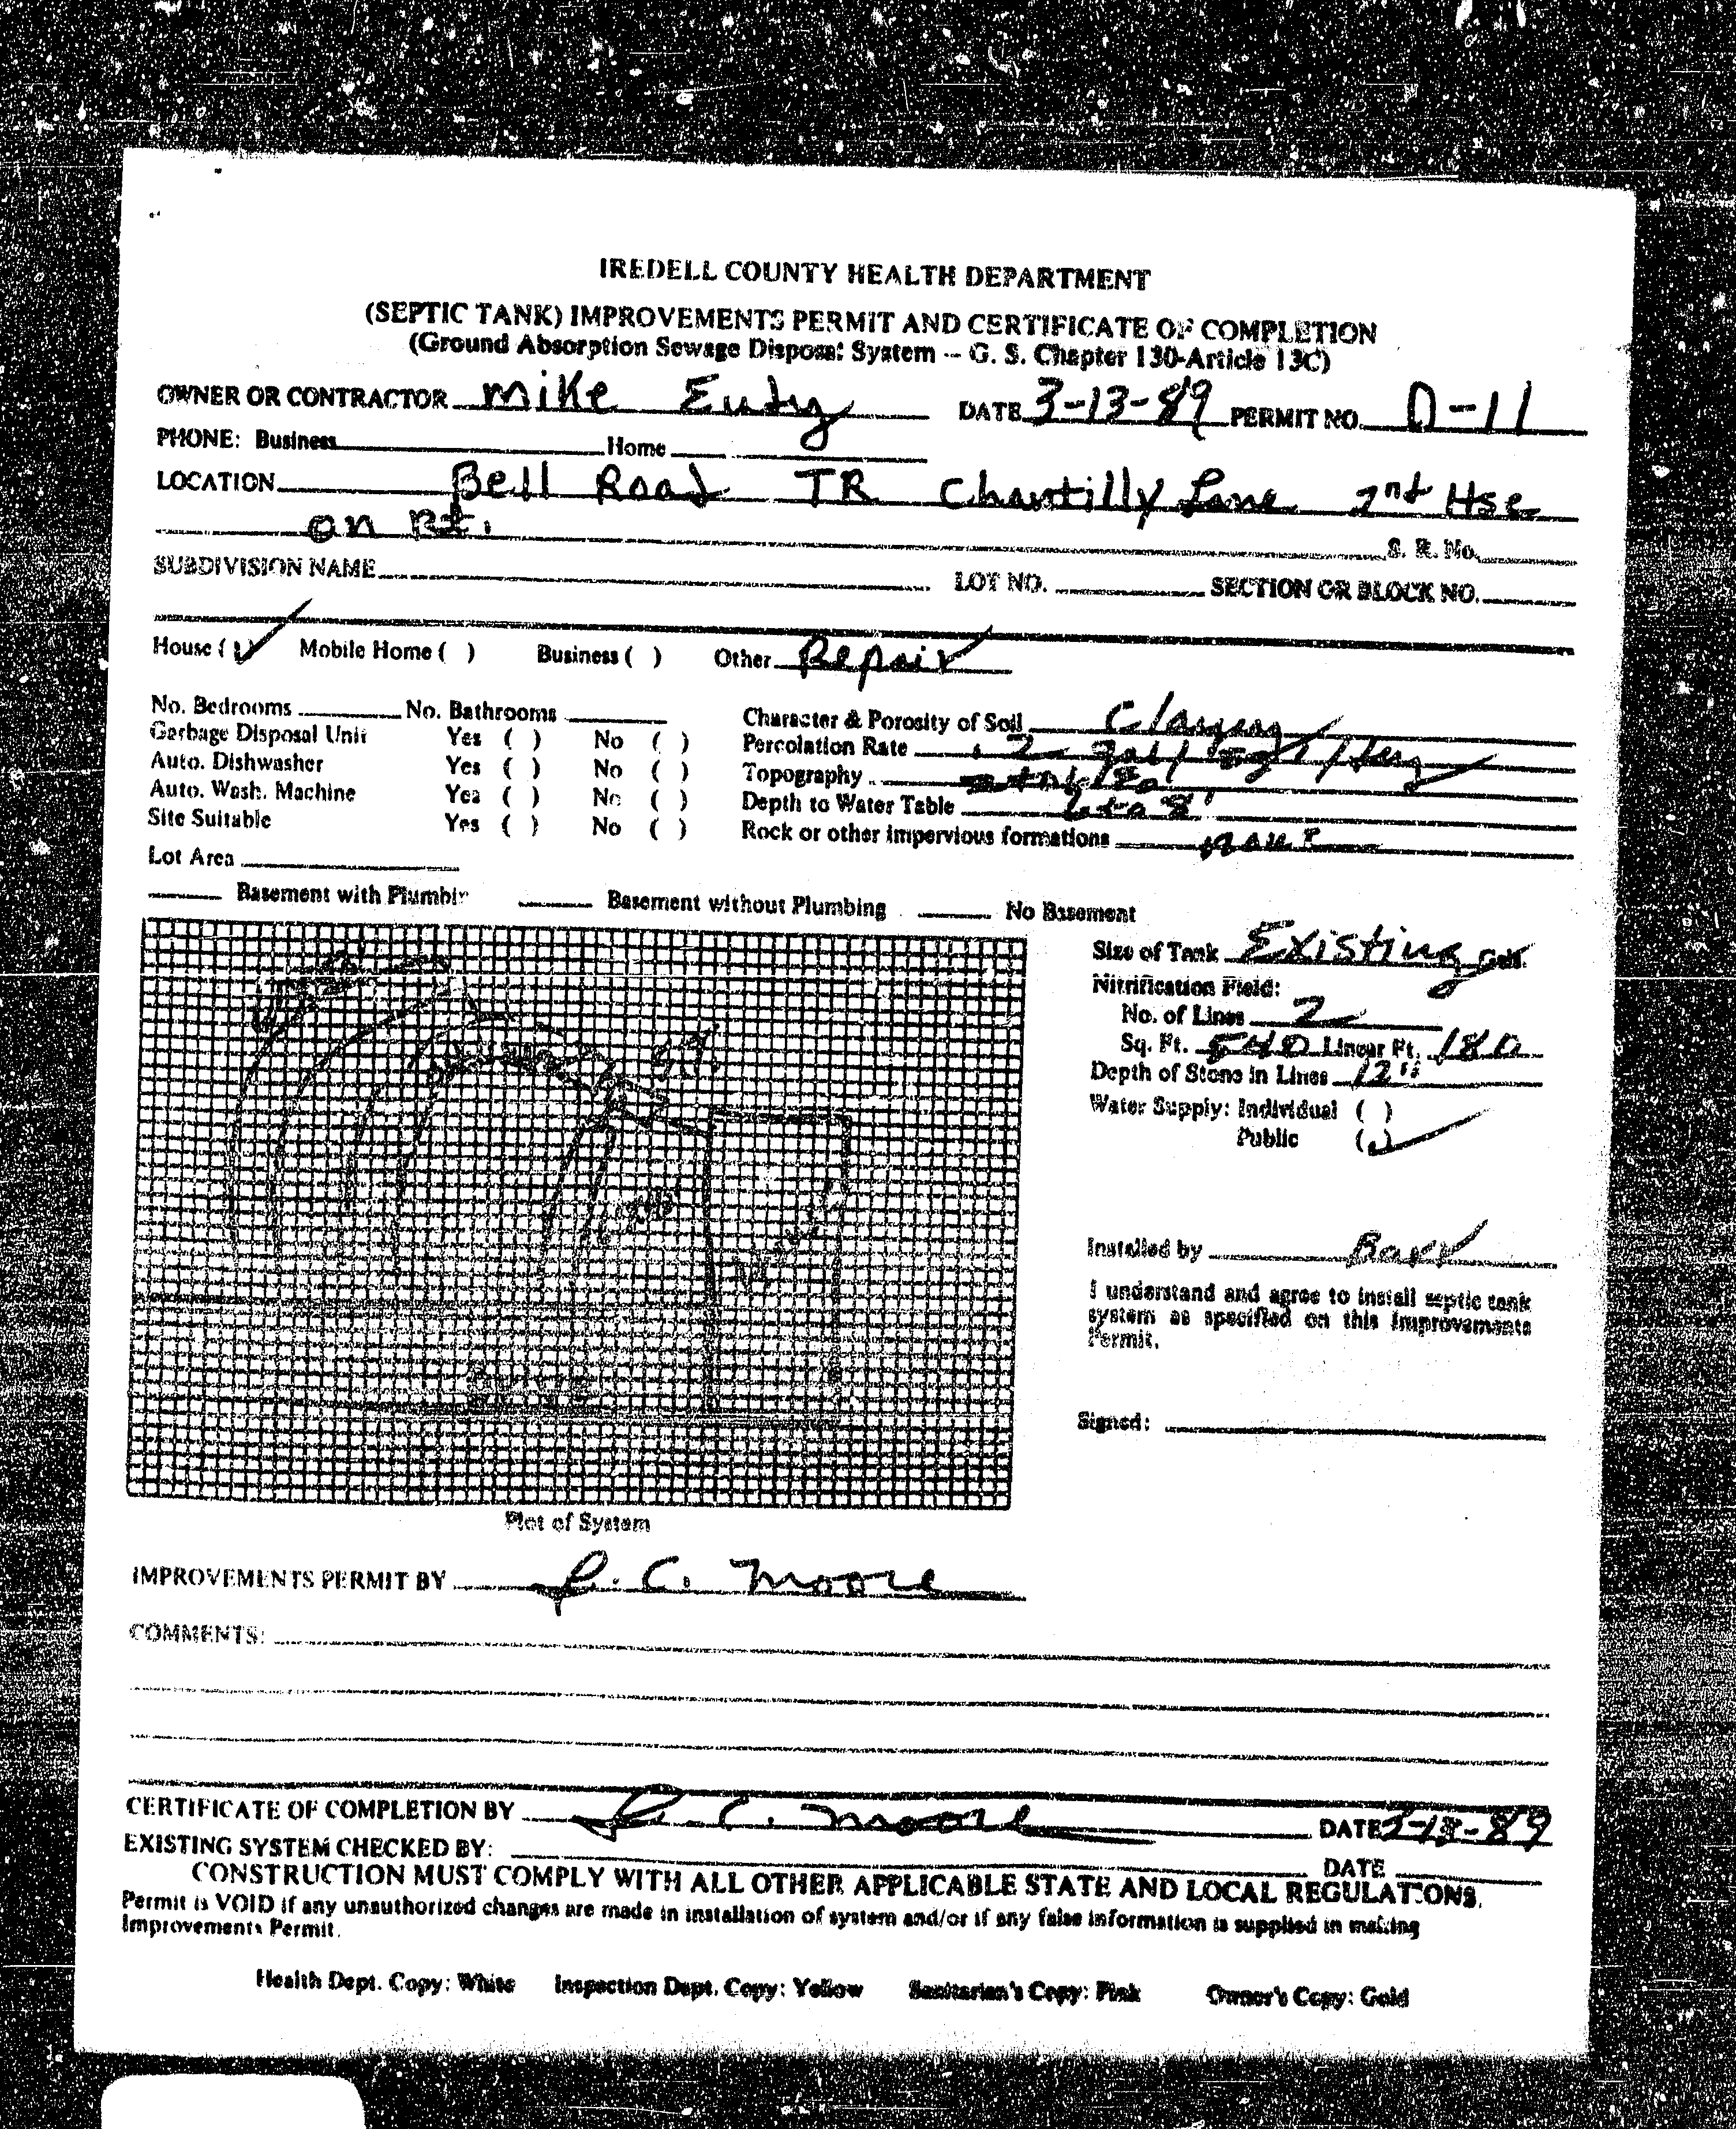 IREDELL COUNTY HEALTH DEPARTMENT
(SEPTIC TANK) IMPROVEMENTS PERMIT AND CERTIFICATE OF COMPLETION
(Ground Absorption Sewage Disposal System -- G. S. Chapter 130-Article 13C)
OWNER OR CONTRACTOR Mike Eudy DATE 3-13-89 PERMIT NO. D-11
PHONE: Business Home
LOCATION Bell Road TR Chantilly Lane 2nd Hse
on Rt. S. R. No.
SUBDIVISION NAME LOT NO. SECTION OR BLOCK NO.
House (✓) Mobile Home ( ) Business ( ) Other Repair
No. Bedrooms No. Bathrooms Character & Porosity of Soil Clayey
Garbage Disposal Unit Yes ( ) No ( ) Percolation Rate .2 gal/
Auto. Dishwasher Yes ( ) No ( ) Topography
Auto. Wash. Machine Yes ( ) No ( ) Depth to Water Table 6 to 8'
Site Suitable Yes ( ) No ( ) Rock or other impervious formations none
Lot Area
Basement with Plumbin Basement without Plumbing No Basement
Size of Tank Existing Gals.
Nitrification Field:
No. of Lines 2
Sq. Ft. 540 Linear Ft. 180
Depth of Stone in Lines 12"
Water Supply: Individual ( )
Public (✓)
Installed by
I understand and agree to install septic tank
system as specified on this Improvements
Permit.
Signed:
Plot of System
IMPROVEMENTS PERMIT BY R. C. Moore
COMMENTS:
CERTIFICATE OF COMPLETION BY R. C. Moore DATE 3-13-89
EXISTING SYSTEM CHECKED BY: DATE
CONSTRUCTION MUST COMPLY WITH ALL OTHER APPLICABLE STATE AND LOCAL REGULATIONS.
Permit is VOID if any unauthorized changes are made in installation of system and/or if any false information is supplied in making
Improvements Permit.
Health Dept. Copy: White Inspection Dept. Copy: Yellow Sanitarian's Copy: Pink Owner's Copy: Gold